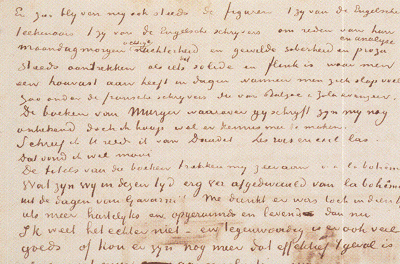 En zoo blyven my ook steeds de figuren 't zy van de Engelsche
teekenaars 't zy van de Engelsche schryvers om reden van hun
maandagmorgen achtige nuchterheid en gewilde soberheid en proza en analyse
steeds aantrekken als iets solide en flinks dat waar men
een houvast aan heeft in dagen wannen men zich slap voelt
Zoo onder de fransche schryvers die van Balzac & Zola evenzeer.
De boeken van Murger waarover gy schryft zyn my nog
onbekend doch ik hoop wel er kennis mee te maken.
Schreef ik U reeds ik van Daudet les rois en exil las.
Dat vond ik wel mooi
De titels van die boeken trekken my zeer aan o.a. la bohême
Wat zyn wy in dezen tyd erg ver afgedwaald van la bohême
uit de dagen van Gavarni! Me dunkt er was toch in dien tyd
iets meer hartelyks en opgeruimds en levends dan nu
Ik weet het echter niet – en tegenwoordig is er ook veel
goeds of kon er zyn nog meer dat effektief 't geval is